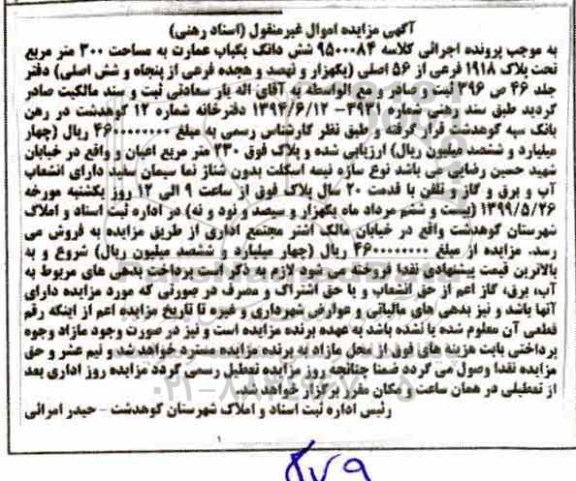 آگهی مزایده اموال غیرمنقول (اسناد رهنی)
به موجب پرونده اجرائی کلاسه ۹۵۰۰۰۸۴ شش دانگ یکباب عمارت به مساحت ۳۰۰ متر مربع
تحت پلاک ۱۹۱۸ فرعی از ۵۶ اصلی (یکهزار و نهصد و هجده فرعی از پنجاه و شش اصلی) دفتر
جلد ۴۶ ص ۳۹۶ ثبت و صادر و مع الواسطه به آقای اله یار سعادتی ثبت و سند مالکیت صادر
گردید طبق سند رهنی شماره ۳۹۳۱- ۱۳۹۴/۶/۱۲ دفترخانه شماره ۱۲ کوهدشت در رهن
بانک سپه کوهدشت قرار گرفته و طبق نظر کارشناس رسمی به مبلغ ۴۶۰۰۰۰۰۰۰۰ ریال (چهار
میلیارد و ششصد میلیون ریال) ارزیابی شده و پلاک فوق ۲۳۰ متر مربع اعیان و واقع در خیابان
شهید حسین رضایی می باشد نوع سازه نیمه اسکلت بدون شناژ نما سیمان سفید دارای انشعاب
آب و برق و گاز و تلفن با قدمت ۲۰ سال پلاک فوق از ساعت ۹ الی ۱۲ روز یکشنبه مورخه
۱۳۹۹/۵/۲۶ (بیست و ششم مرداد ماه یکهزار و سیصد و نود و نه) در اداره ثبت اسناد و املاک
شهرستان کوهدشت واقع در خیابان مالک اشتر مجتمع اداری از طریق مزایده به فروش می
رسد. مزایده از مبلغ ۴۶۰۰۰۰۰۰۰۰ ریال (چهار میلیارد و ششصد میلیون ریال) شروع و به
بالاترین قیمت پیشنهادی نقدا فروخته می شود لازم به ذکر است پرداخت بدهی های مربوط به
آب، برق، گاز اعم از حق انشعاب و یا حق اشتراک و مصرف در صورتی که مورد مزایده دارای
آنها باشد و نیز بدهی های مالیاتی و عوارض شهرداری و غیره تا تاریخ مزایده اعم از اینکه رقم
قطعی آن معلوم شده یا نشده باشد به عهده برنده مزایده است و نیز در صورت وجود مازاد وجوه
پرداختی بابت هزینه های فوق از محل مازاد به برنده مزایده مسترد خواهد شد و نیم عشر و حق
مزایده نقدا وصول می گردد ضمنا چنانچه روز مزایده تعطیل رسمی گردد مزایده روز اداری بعد
از تعطیلی در همان ساعت و مکان مقرر برگزار خواهد شد.
رئیس اداره ثبت اسناد و املاک شهرستان کوهدشت - حیدر امرائی